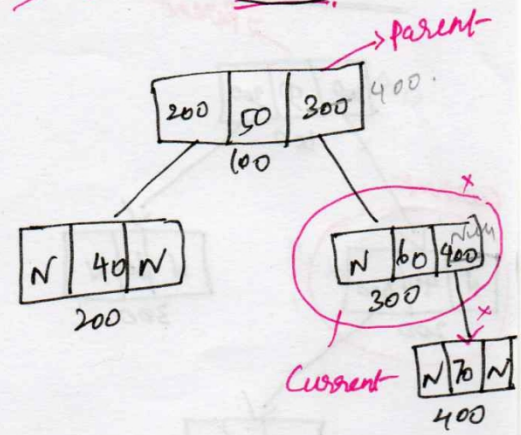 Parent
200 50 300 400.
100
x
N 40 N
N 60 400 Null
200
300
x
Current
N 70 N
400